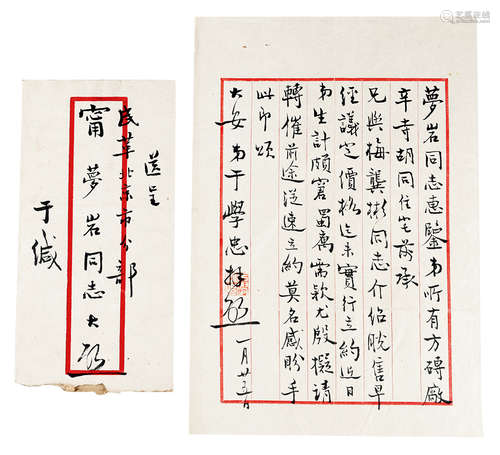 夢岩同志惠鑒弟所有方磚廠
辛寺胡同住宅前承
兄與梅龔彬同志介紹脫售早
經議定價格迄未實行立約近日
弟生計頗窘蜀寓需款尤殷擬請
轉催前途從速立約莫名感盼手
此即頌
大安弟于學忠拜啟
一月廿五日
送呈
民革北京市分部
甯夢岩同志大啟
于緘